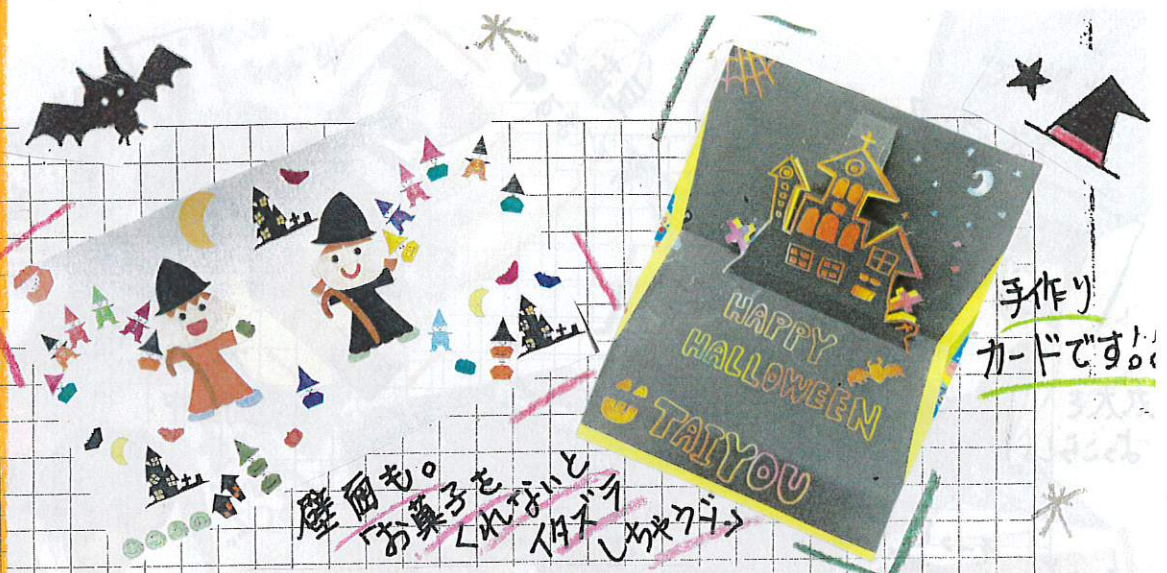 壁面も。
「お菓子を
くれないと
イタズラ
しちゃうゾ」
HAPPY
HALLOWEEN
TAIYOU
手作り
カードです!!